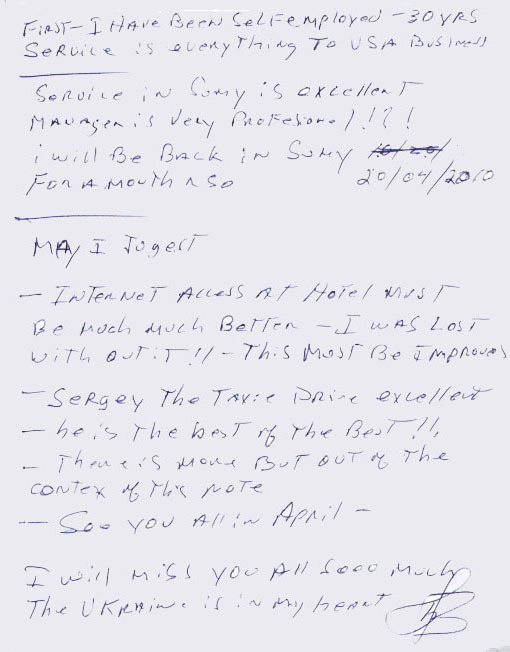 First - I Have Been Selfemployed - 30 yrs
Service is everything To USA Business
Service in Sumy is excellent
Manager is Very Profesional!!!
i will Be Back in Sumy
For a month r so 20/04/2010
May I Sugest
- Internet Access At Hotel Must
Be much much Better - I was Lost
with out it!! - This Must Be Improved
- Sergey The Taxie Drive excellent
- he is The best of The Best!!,
- There is more But out of The
contex of This note
- See you All in April -
I will miss you All sooo Much
The Ukraine is in my heart